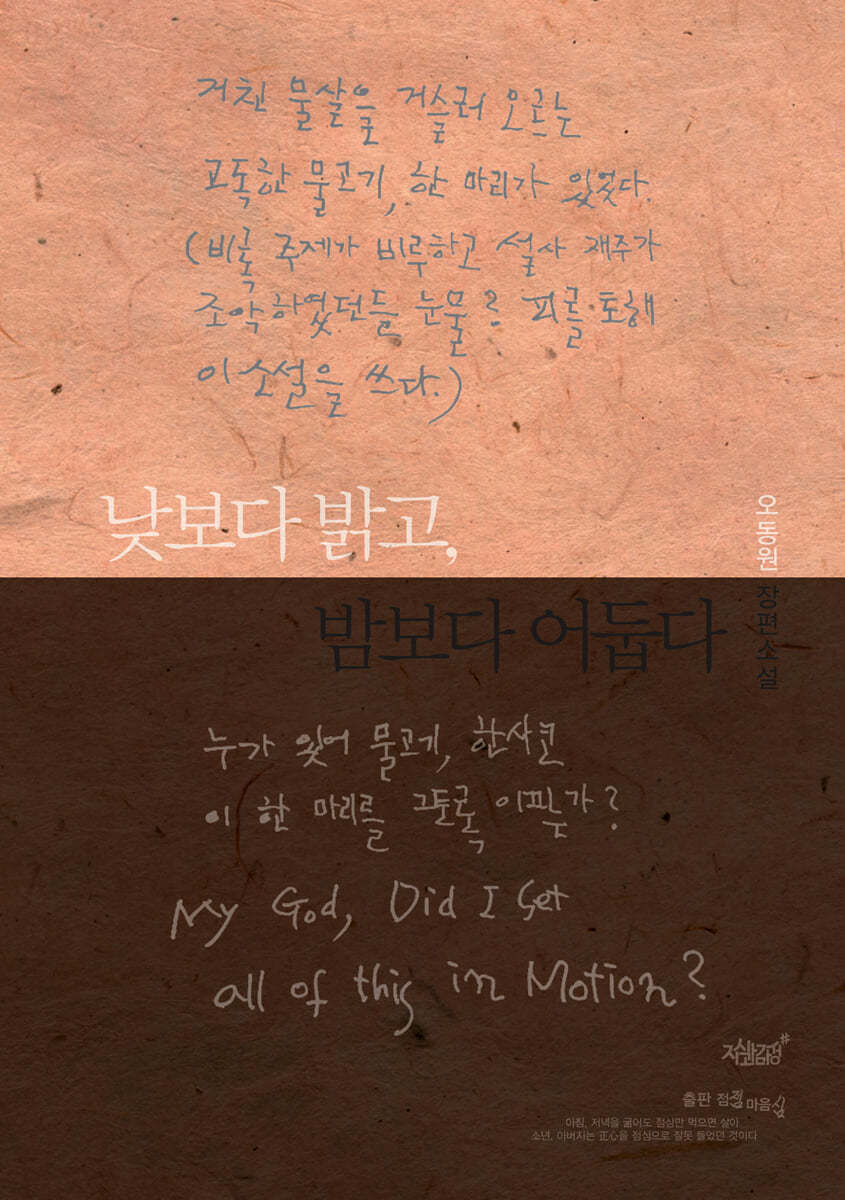 거친 물살을 거슬러 오르는
고독한 물고기, 한 마리가 있었다.
(비록 주제가 비루하고 설사 재주가
조악하였던들 눈물? 피를 토해
이 소설을 쓰다.)
낮보다 밝고,
밤보다 어둡다
오동원 장편소설
누가 있어 물고기, 한사코
이 한 마리를 그토록 아픈가?
My God, Did I Set
all of this in Motion?
지식과감성#
출판 점정 마음심
아침, 저녁을 굶어도 점심만 먹으면 살아
소년, 아버지는 正心을 점심으로 잘못 들었던 것이다